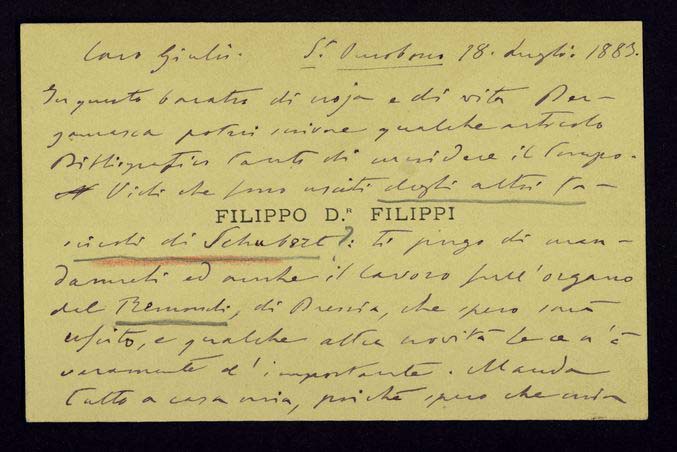 Caro Giulio. St. Omobono 18. Luglio. 1883.
In questo baratro di noja e di vita Ber-
gamasca potrei scrivere qualche articolo
Bibliografico tanto di uccidere il tempo.
Vidi che sono usciti degli altri fa-
FILIPPO D.R FILIPPI
scicoli di Schubert?: ti prego di man-
darmeli ed anche il lavoro sull'organo
del Remondi, di Brescia, che spero sarà
uscito, e qualche altra novità se ce n'è
veramente d'importante. Manda
tutto a casa mia, poichè spero che mia